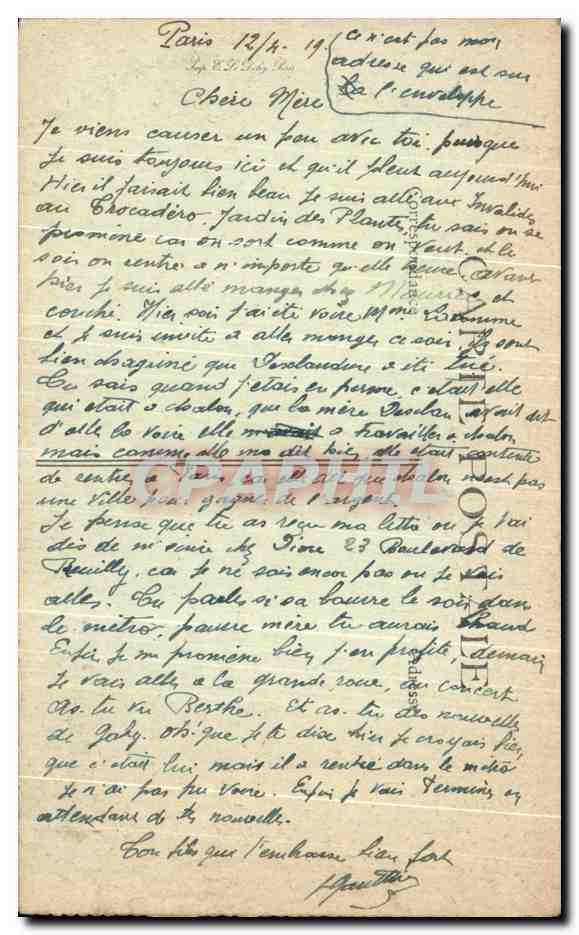 Paris 12/4. 19.
Ce n'est pas mon
adresse qui est sur
l'enveloppe
Imp. E. Le Deley Paris
Chère Mère
Je viens causer un peu avec toi puisque
Je suis toujours ici et qu'il pleut aujourd'hui
Hier il faisait bien beau Je suis allé aux Invalides
au Trocadéro, Jardin des Plantes, tu sais on se
promène car on sort comme on veut et le
soir on rentre a n'importe qu'elle heure. avant
hier Je suis allé manger chez Maurice et
couché. Hier soir J'ai été voire Mme
et Je suis invité a aller manger ce soir, ils sont
bien chagriné que a été tué.
Tu sais quand J'étais en perme c'était elle
qui était a chalon, que la mère avait dit
d'elle la voire elle a travailler a chalon
mais comme elle ma dit bien elle était contente
de rentrer a Paris car elle dit que chalon n'est pas
une ville pour gagner de l'argent.
Je pense que tu as reçue ma lettre ou Je t'ai
dis de m'écrire chez 23 Boulevard de
Reuilly, car Je ne sais encor pas ou Je vais
aller. Tu parles si sa bourre le soir dans
le métro, pauvre mère tu aurais chaud
Enfin Je me promène bien J'en profite, demain
Je vais aller a la grande roue, au concert
As-tu vu Berthe. Et as-tu des nouvelle
de Gaby. Oh! que Je te dise hier Je croyais bien
que c'était lui mais il a rentré dans le métro
Je n'ai pas pu voire. Enfin Je vais Terminer en
attendant de tes nouvelles.
Ton fils que t'embrasse bien fort
CARTE POSTALE
Correspondance
Adresse
CPAPHIL